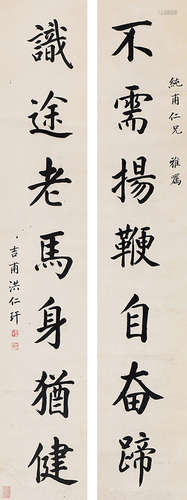 不需揚鞭自奮蹄
純甫仁兄 雅屬
識途老馬身猶健
吉甫洪仁玕